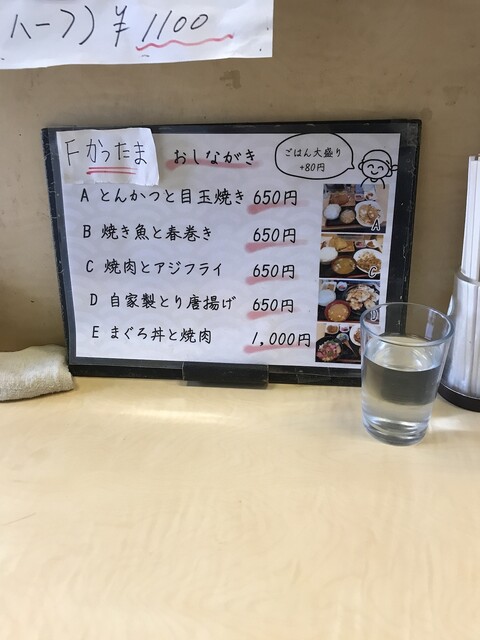 ハーフ) ¥1100
F かつたま
おしながき
ごはん大盛り
+80円
A とんかつと目玉焼き 650円
B 焼き魚と春巻き 650円
C 焼肉とアジフライ 650円
D 自家製とり唐揚げ 650円
E まぐろ丼と焼肉 1,000円
A
C
D